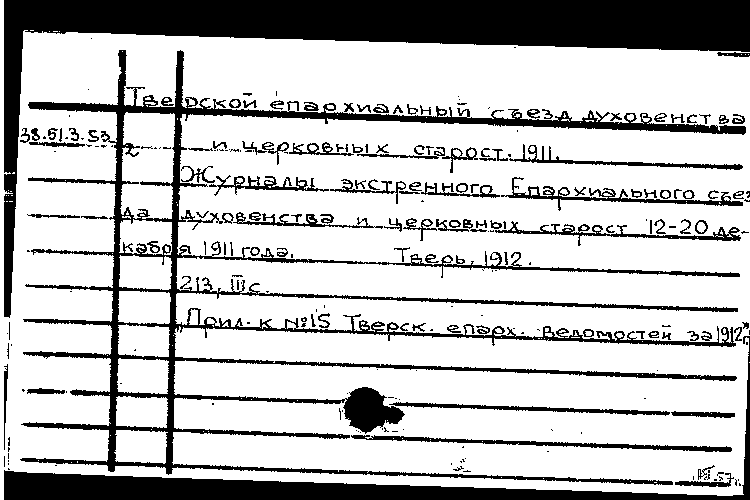 Тверской епархиальный съезд духовенства
38.61.3.53
2
и церковных старост. 1911.
Журналы экстренного Епархиального съез
да духовенства и церковных старост 12-20 де-
кабря 1911 года. Тверь, 1912.
213, III с.
„Прил. к №15 Тверск. епарх. ведомостей за 1912 г."